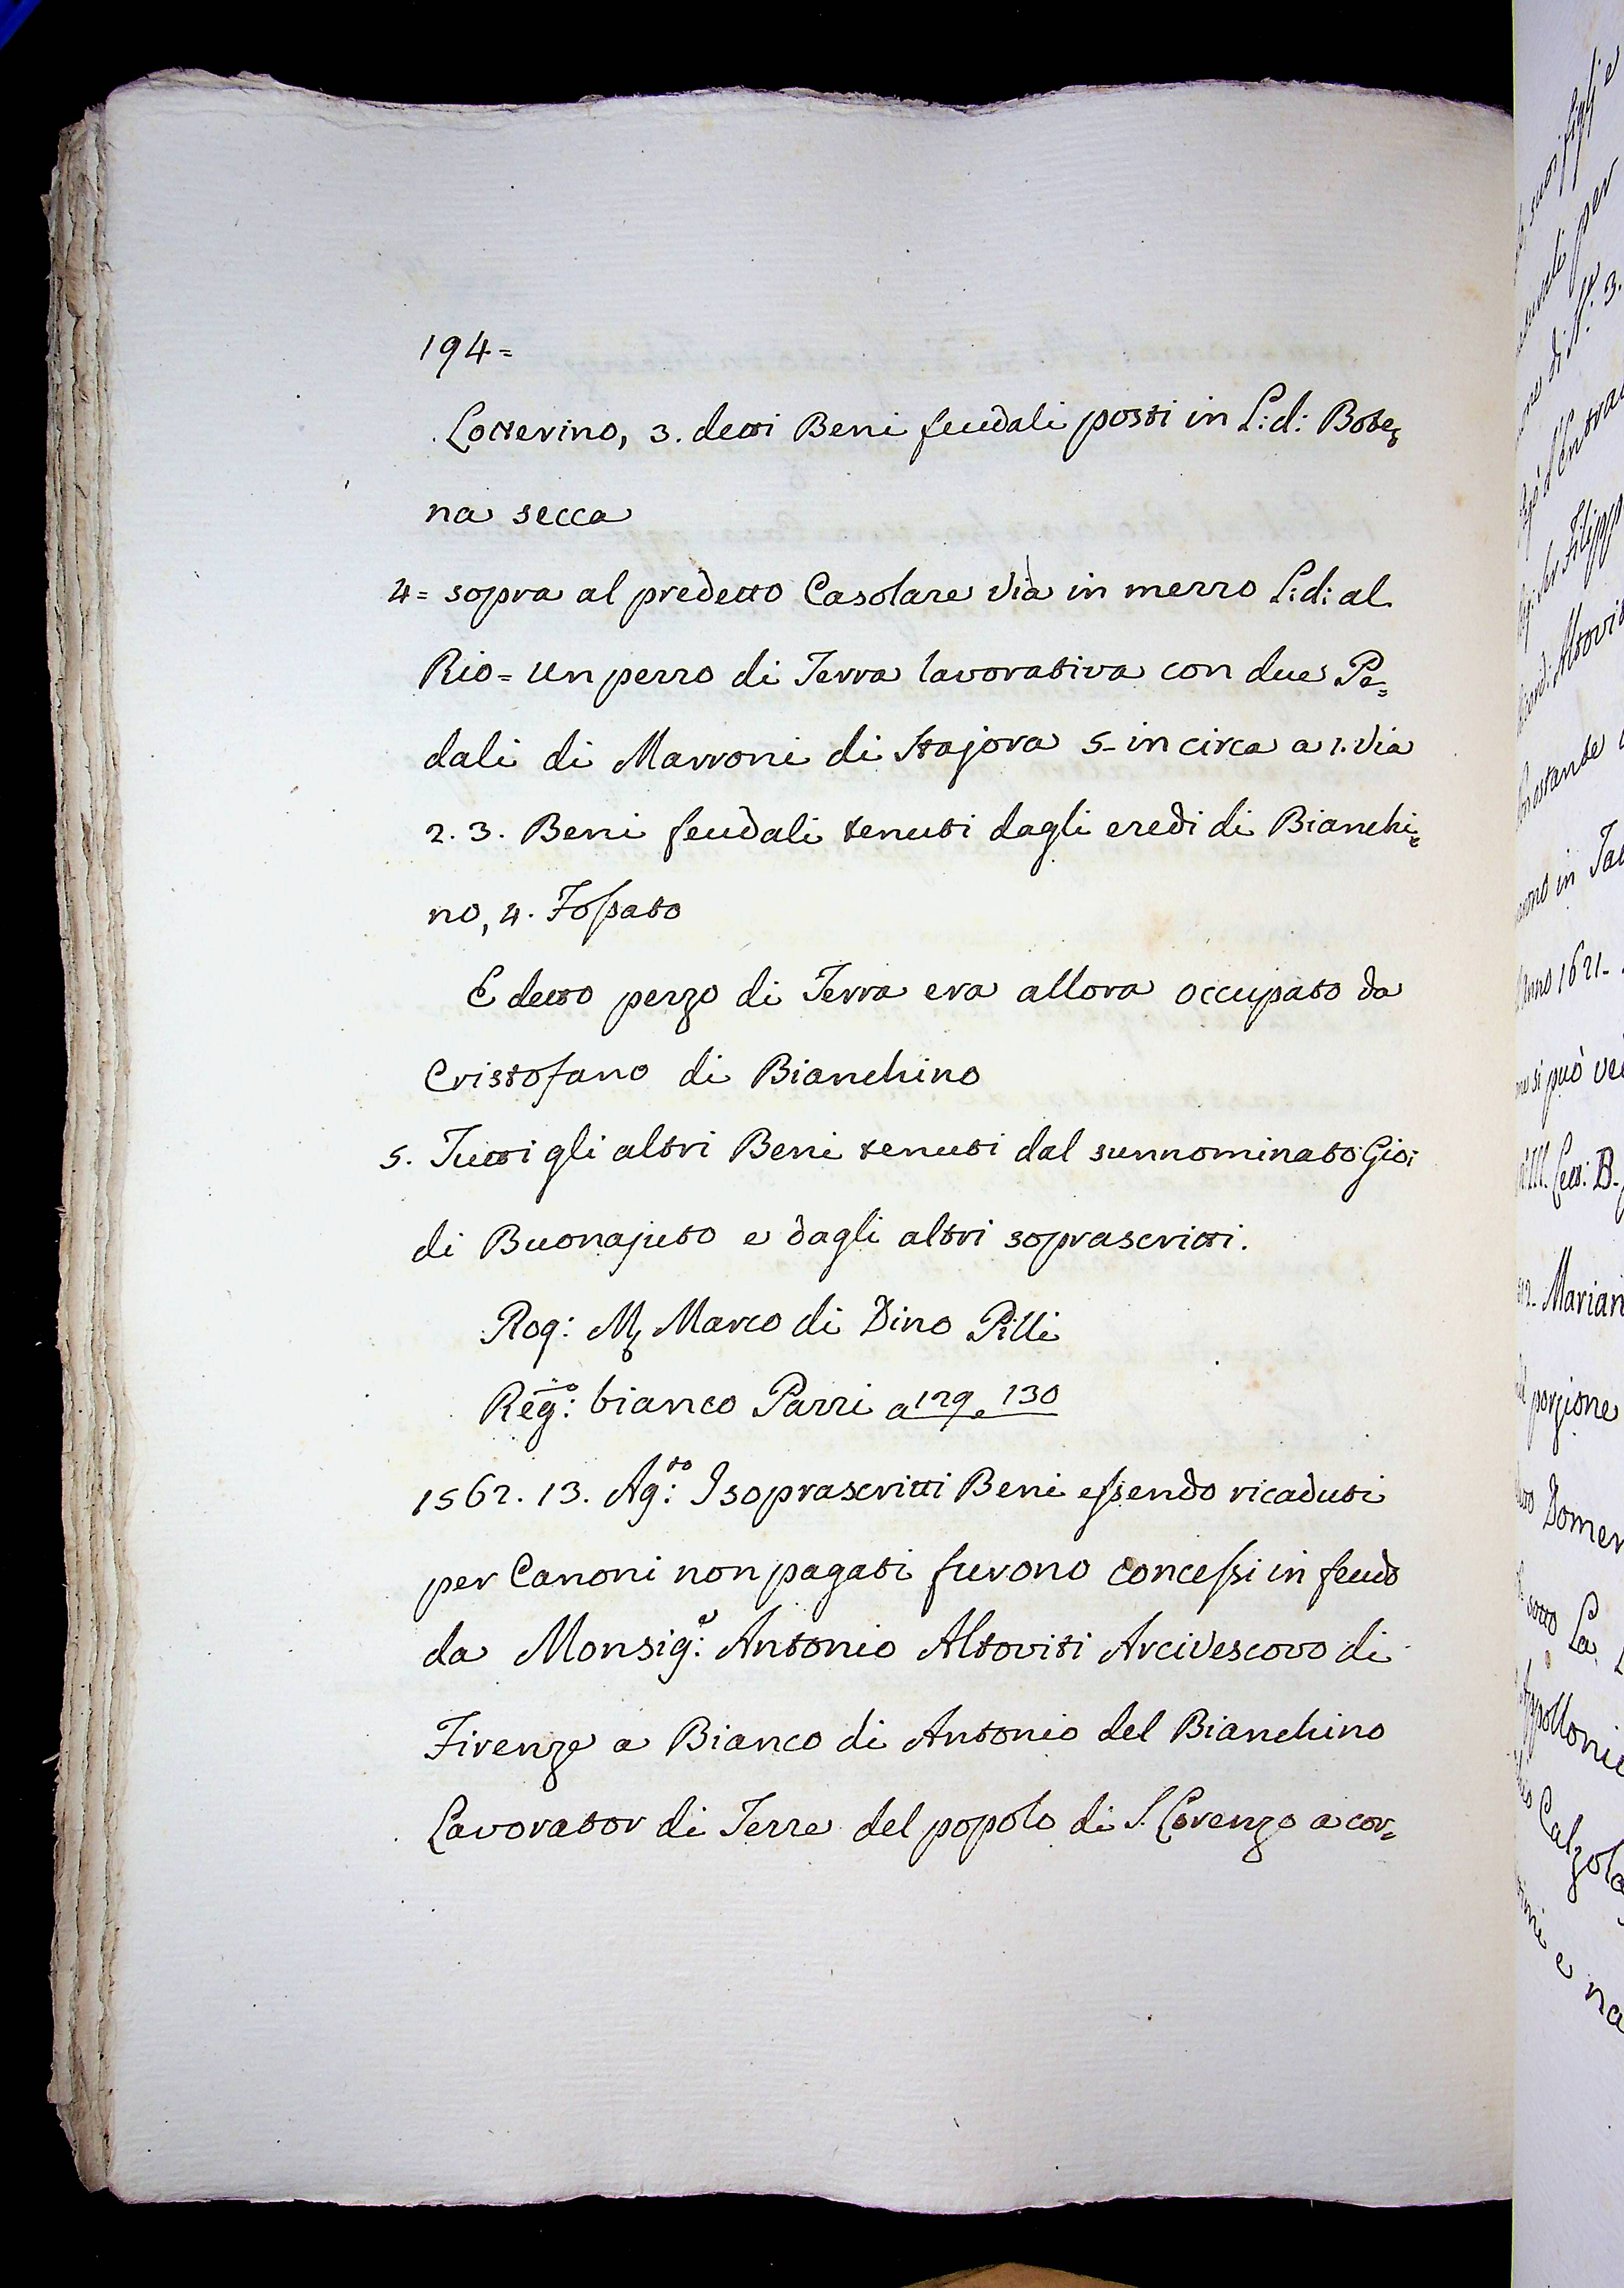 194=
Lotterino, 3. detti Beni feudali posti in L: d: Bote=
na secca
4= sopra al predetto Casolare via in mezzo L: d: al
Rio= Un pezzo di Terra lavorativa con due Pe=
dali di Marroni di Stajora 5- in circa a 1. Via
2. 3. Beni feudali tenuti dagli eredi di Bianchi=
no, 4. Fossato
E detto pezzo di Terra era allora occupato da
Cristofano di Bianchino
5. Tutti gli altri Beni tenuti dal sunnominato Gio:
di Buonajuto e dagli altri soprascritti.
Rog: Marco di Dino Pilli
Reg:ro bianco Pazzi a 129 e 130
1562. 13. Ag:to I soprascritti Beni essendo ricaduti
per Canoni non pagati furono concessi in feudo
da Monsig:e Antonio Altoviti Arcivescovo di
Firenze a Bianco di Antonio del Bianchino
Lavorator di Terre del popolo di S. Lorenzo a cor=
suoi figli e
per
di N: 3.
Ser Filippo
Altovi
in
Anno 1621-
si può
Lett: B.
Marian
porzione
Domen
sotto La
Appolloni
Calzola
e na